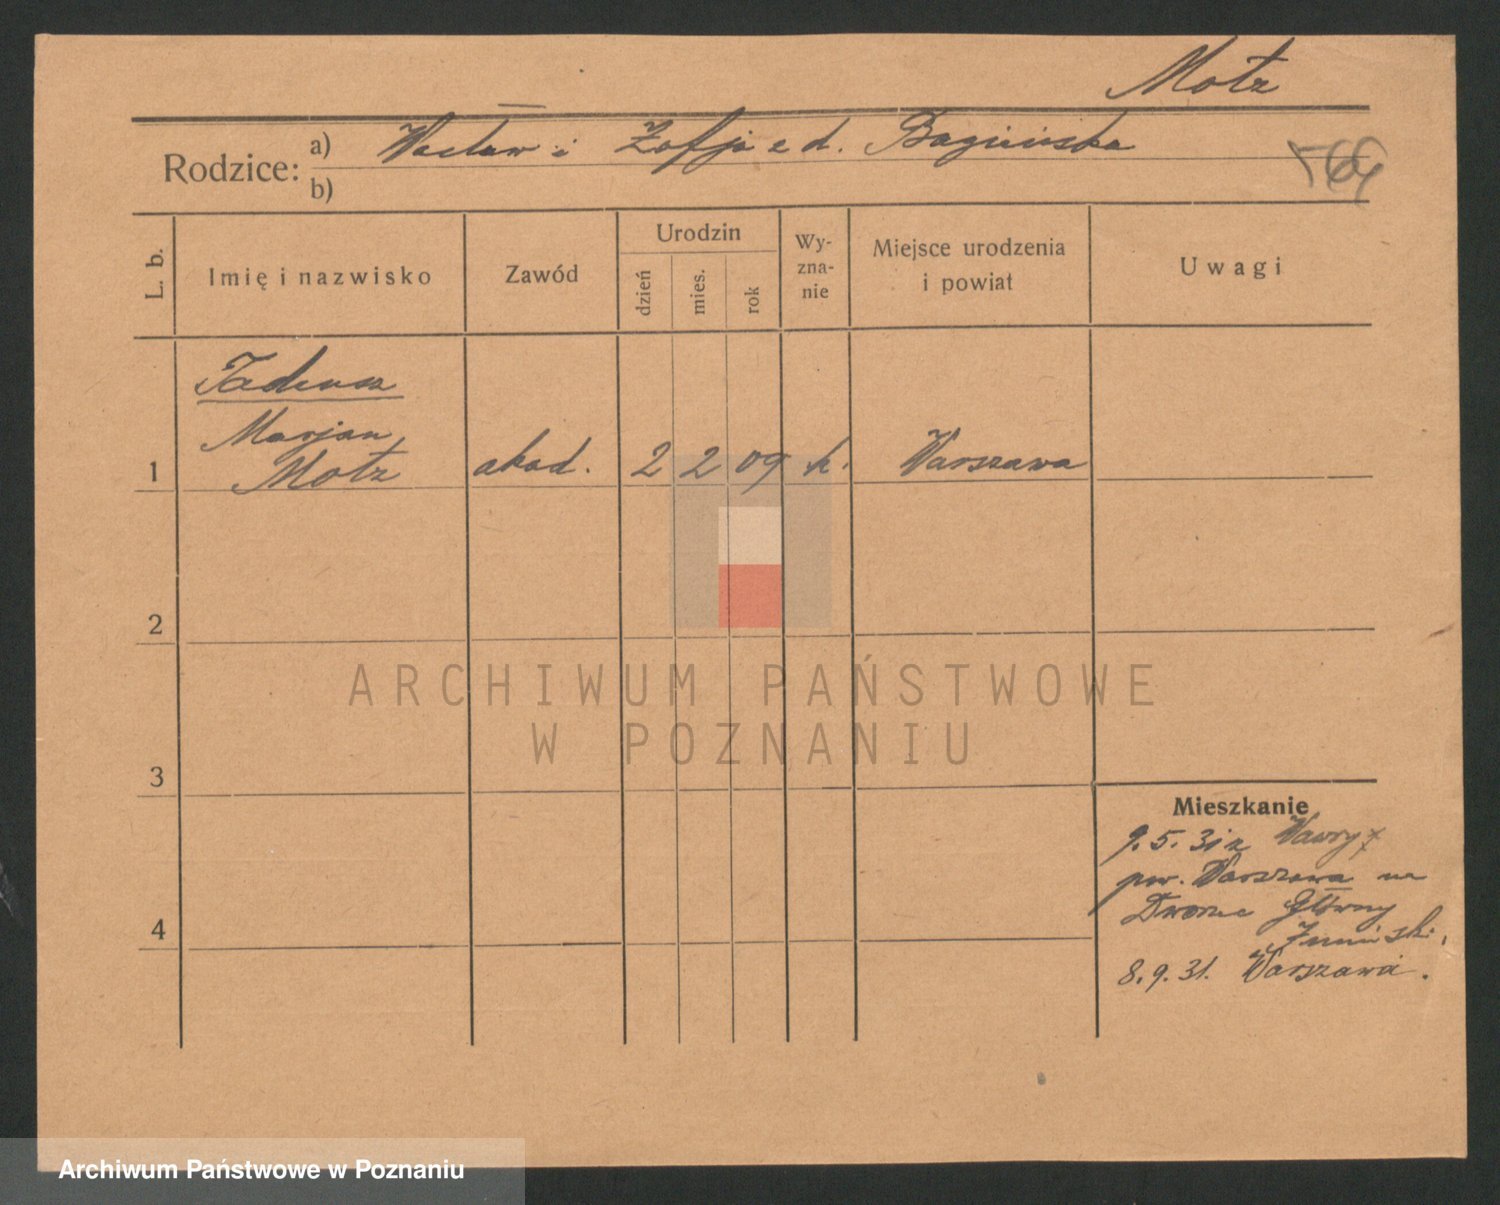 Motz
Rodzice: a) Wacław i Zofja z d. Bagieńska
b)
L. b.
Imię i nazwisko
Zawód
Urodzin
dzień
mies.
rok
Wy-
zna-
nie
Miejsce urodzenia
i powiat
Uwagi
Tadeusz
Marjan
1 Motz akad. 2 2 09 k. Warszawa
2
3
4
ARCHIWUM PAŃSTWOWE
W POZNANIU
Mieszkanie
9.5.31 z
pow. Warszawa na
Dworzec Główny
8.9.31. Warszawa.
Archiwum Państwowe w Poznaniu